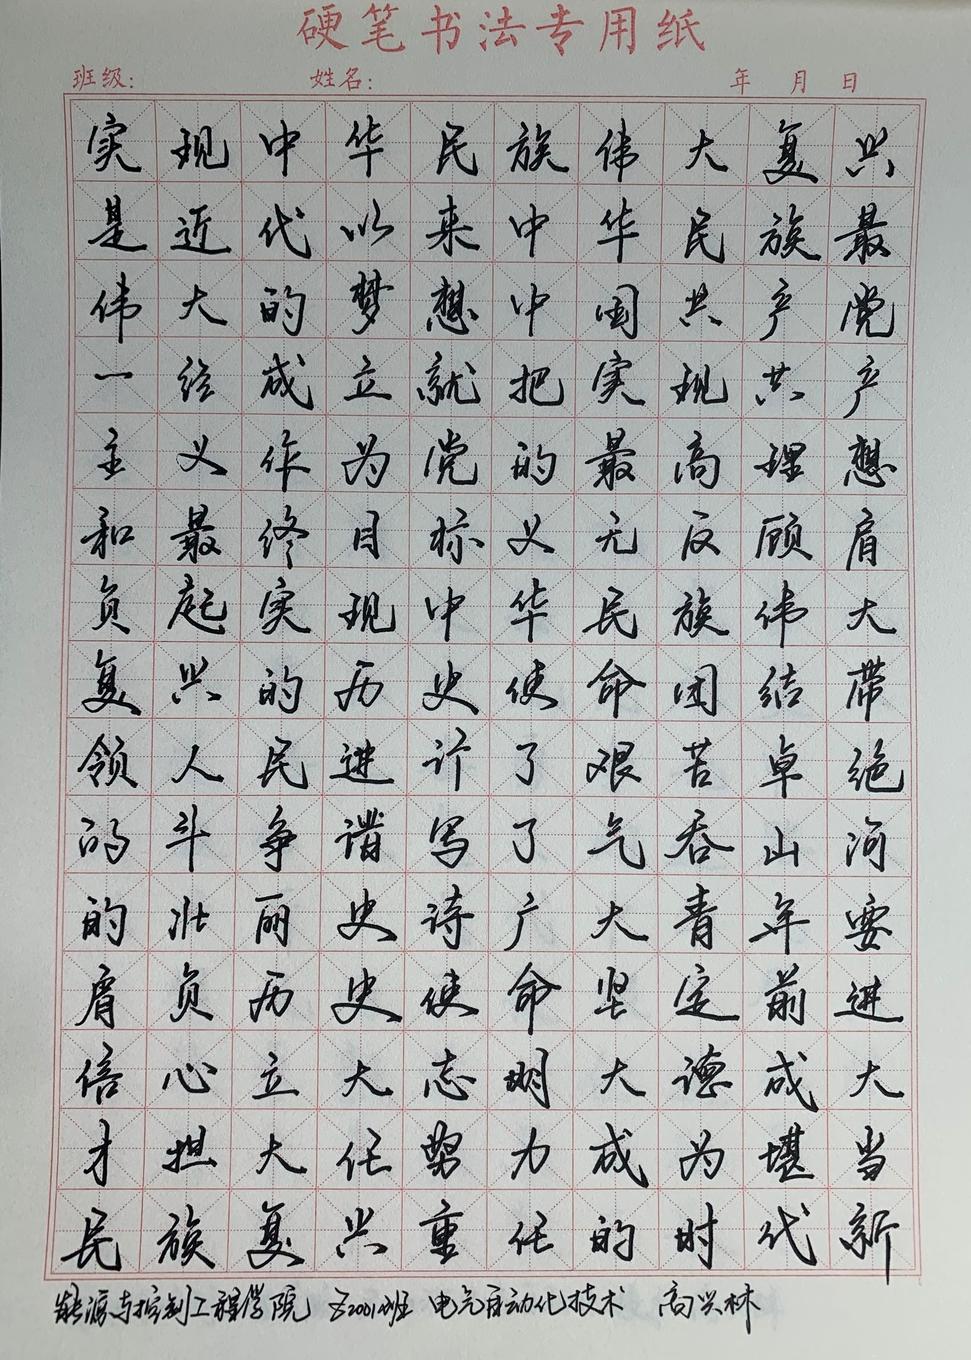 硬笔书法专用纸
班级: 姓名: 年 月 日
实现中华民族伟大复兴
是近代以来中华民族最
伟大的梦想中国共产党
一经成立就把实现共产
主义作为党的最高理想
和最终目标义无反顾肩
负起实现中华民族伟大
复兴的历史使命团结带
领人民进行了艰苦卓绝
的斗争谱写了气吞山河
的壮丽史诗广大青年要
肩负历史使命坚定前进
信心立大志明大德成大
才担大任努力成为堪当
民族复兴重任的时代新
能源与控制工程学院 Z2001班 电气自动化技术 高兴林